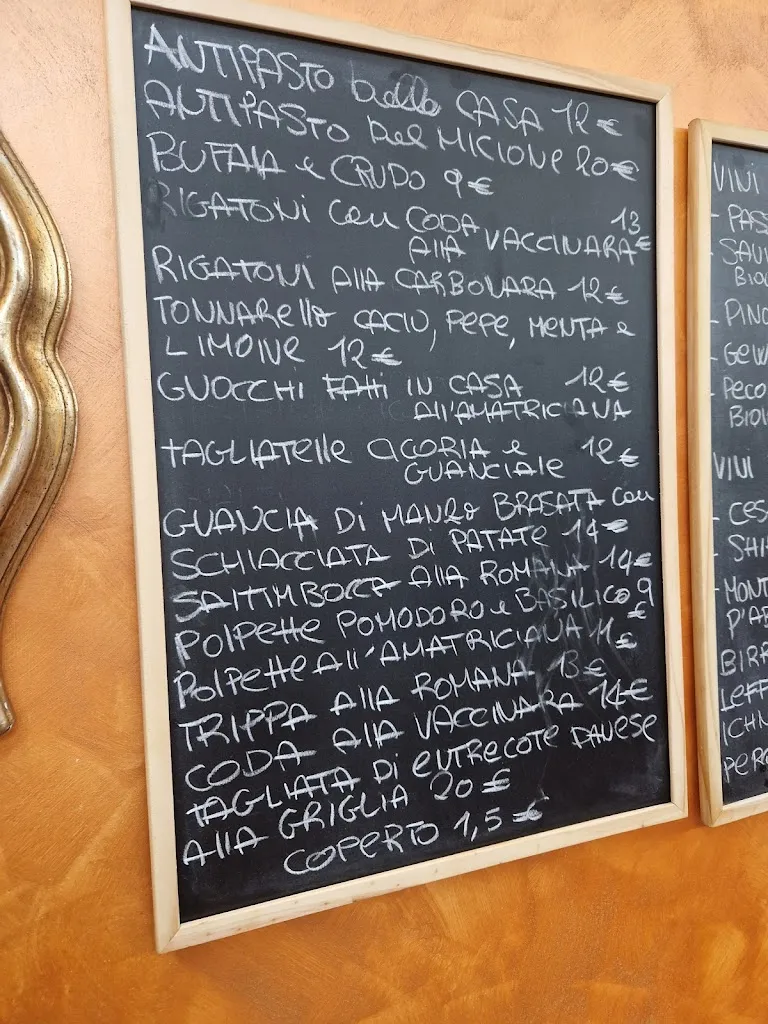 ANTIPASTO della CASA 12 €
ANTIPASTO del MICIONE 20 €
BUFALA e CRUDO 9 €
RIGATONI con CODA 13
Alla VACCINARA €
RIGATONI Alla CARBONARA 12 €
TONNARello CACIO, PEPE, MENTA e
LIMONE 12 €
GNOCCHI FATTi IN CASA 12 €
All'AMATRICIANA
TAGLIATelle CICORIA e 12 €
GUANCIAle
GUANCIA Di MANZO BRASATA con
SCHIACCIATA DI PATATE 14 €
SALTIMBOCCA Alla ROMANA 14 €
POLPETTE POMODORO e BASILICO 9
€
POLPETTE All'AMATRICIANA 11 €
TRIPPA Alla ROMANA 13 €
CODA Alla VACCINARA 14 €
TAGLIATA Di ENTRECOTE DANESE
Alla GRIGLIA 20 €
COPERTO 1,5 €
VINI
- PAS
- SAU
BIO
- PINO
- GeW
- Peco
BIO
VINI
- CES
- SHI
- MONT
D'AB
BIRR
LeFF
ICHN
PERO